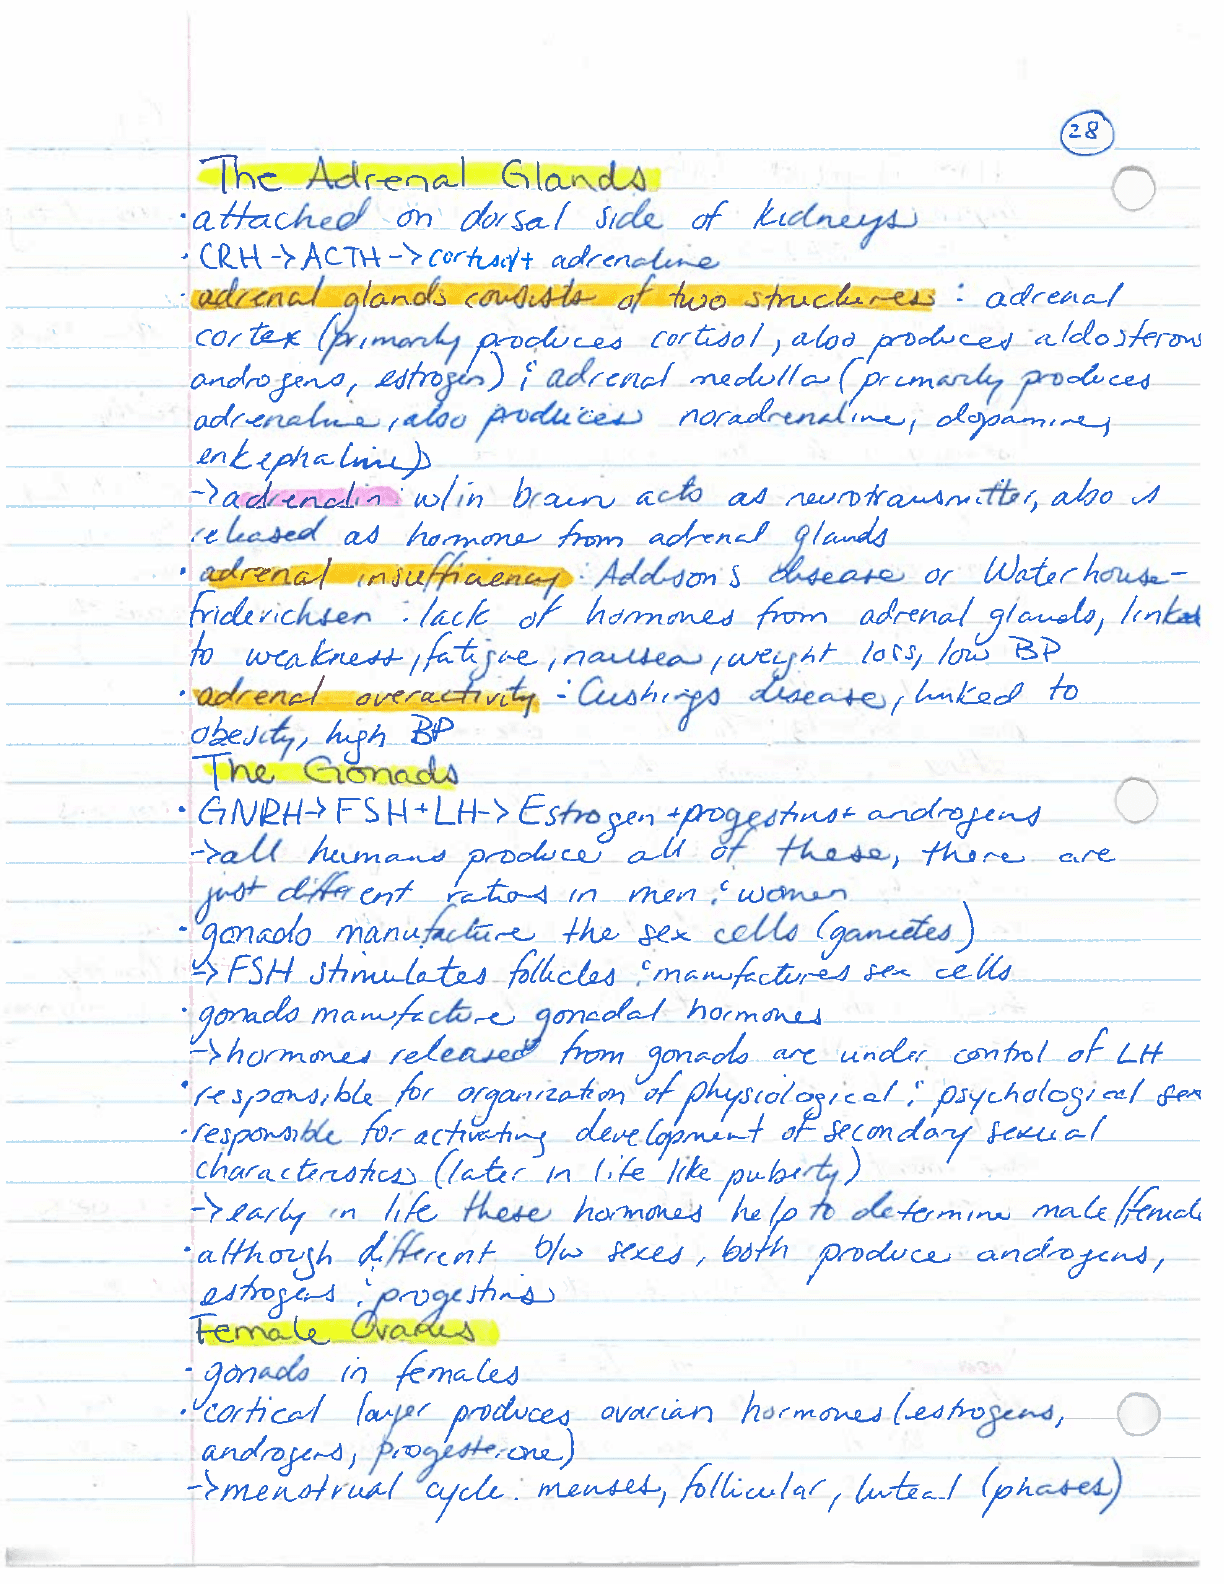 28
The Adrenal Glands
· attached on dorsal side of kidneys
· CRH -> ACTH -> cortisol + adrenaline
· adrenal glands consists of two structures : adrenal
cortex (primarily produces cortisol, also produces aldosterone
androgens, estrogen) & adrenal medulla (primarily produces
adrenaline, also produces noradrenaline, dopamine,
enkephaline)
-> adrenalin w/in brain acts as neurotransmitter, also is
released as hormone from adrenal glands
· adrenal insufficiency : Addison's disease or Waterhouse-
friderichsen : lack of hormones from adrenal glands, linked
to weakness, fatigue, nausea, weight loss, low BP
· adrenal overactivity : Cushings disease, linked to
obesity, high BP
The Gonads
· GNRH -> FSH + LH -> Estrogen + progestins + androgens
-> all humans produce all of these, there are
just different rations in men & women
· gonads manufacture the sex cells (gametes)
-> FSH stimulates follicles & manufactures sex cells
· gonads manufacture gonadal hormones
-> hormones released from gonads are under control of LH
· responsible for organization of physiological & psychological sex
· responsible for activating development of secondary sexual
characteristics (later in life like puberty)
-> early in life these hormones help to determine male/female
· although different b/w sexes, both produce androgens,
estrogens & progestins
Female Ovaries
· gonads in females
· cortical layer produces ovarian hormones (estrogens,
androgens, progesterone)
-> menstrual cycle : menses, follicular, luteal (phases)